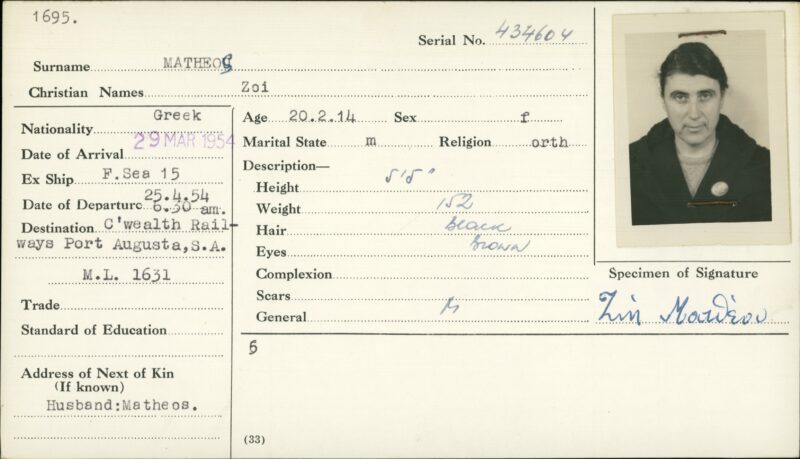 1695.
Serial No. 434604
Surname MATHEOS
Christian Names Zoi
Nationality Greek
Date of Arrival 29 MAR 1954
Ex Ship F.Sea 15
Date of Departure 25.4.54
6.30 am.
Destination C'wealth Rail-
ways Port Augusta,S.A.
M.L. 1631
Trade
Standard of Education
Address of Next of Kin
(If known)
Husband:Matheos.
Age 20.2.14 Sex f
Marital State m Religion orth
Description—
Height 5'5"
Weight 152
Hair Black
Eyes Brown
Complexion
Scars
General M
B
(33)
Specimen of Signature
Ζωή Ματθέου